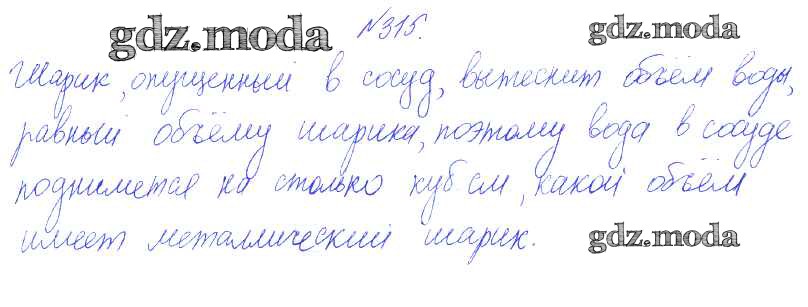 gdz.moda №315. gdz.moda
Шарик, опущенный в сосуд, вытеснит объём воды,
равный объёму шарика, поэтому вода в сосуде
поднимется на столько куб см, какой объём
имеет металлический шарик. gdz.moda